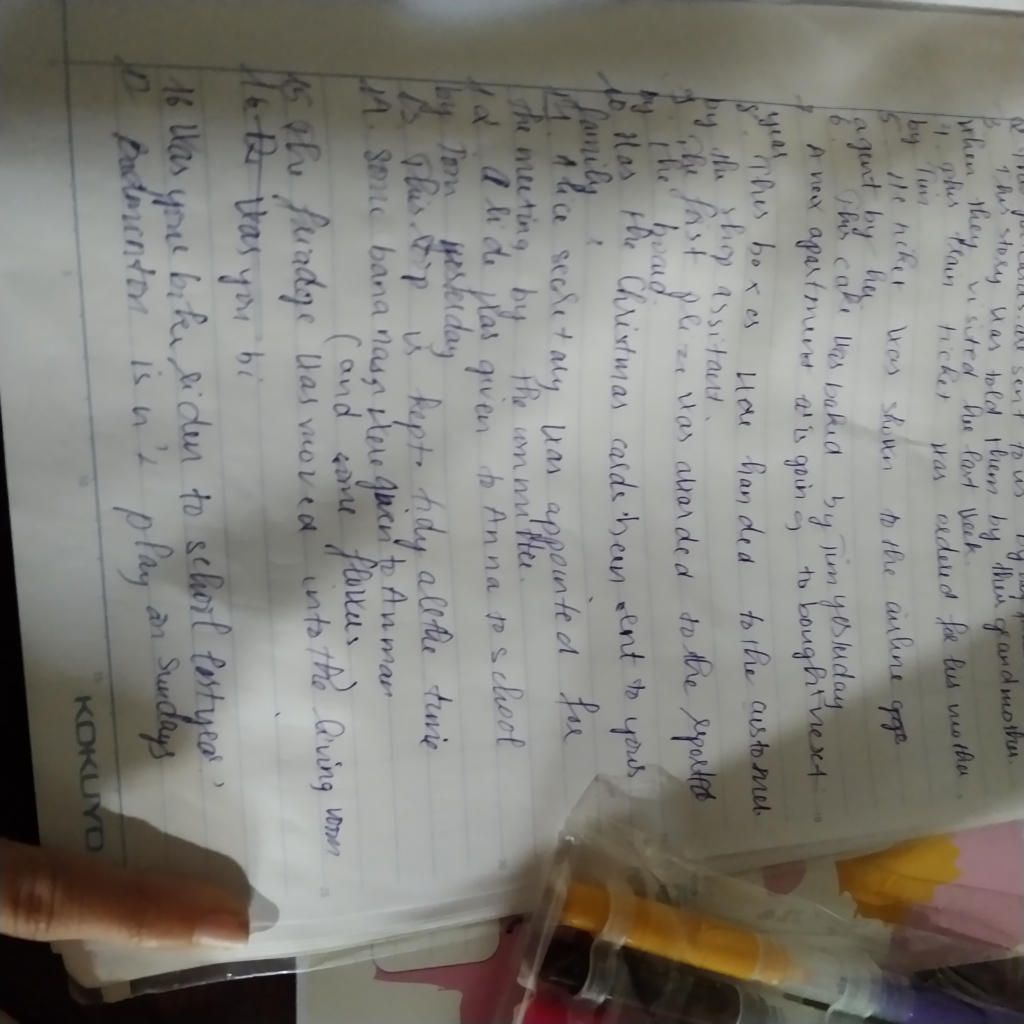 sent to us by
3 This story was told them by their grandmother
when they visited her last week.
4. This train ticket was ordered for his mother
by Tim
5 He nike was shown to the airline age
agent by her
6 This cake was baked by Tim yesterday
7 A new apartment is going to bought next
year
8. This boxes were handed to the customer
by the shop assitant.
9 The first prize was awarded to the reporter
by the board.
10 Has the Christmas cards been sent to your
family?
11 Alice secretary was appointed for
the meeting by the committee.
12 A ride was given to Anna to school
by Tom yesterday
13 This is kept tidy all the time
14. some bananas were given to Anmar
(and some flowers)
15 The fruidge was moved into the living room
16 12 Was you bi
16 Was your bike riden to school last year?
17 Badmenton isn't play on Sundays
KOKUYO